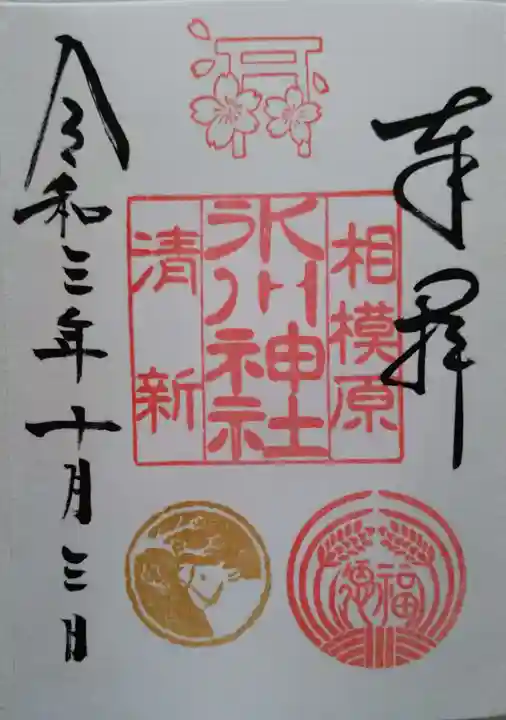 奉拝
相模原
氷川神社
清新
福徳
令和三年十月三日